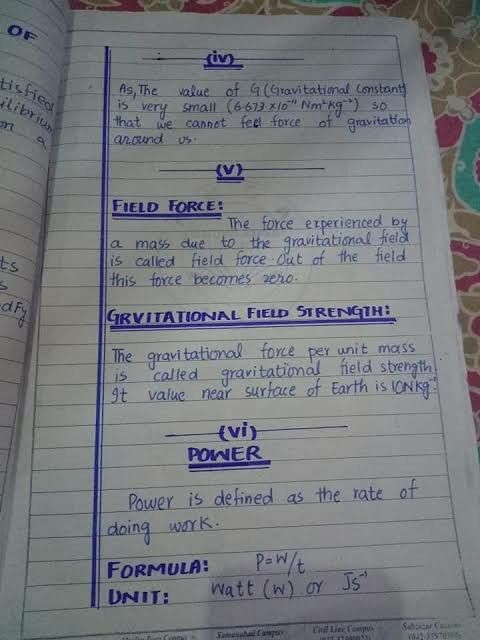 OF
tisfied
ilibrium
on a
ts
s
dFy
(iv)
As, The value of G (Gravitational Constant)
is very small (6.673 x 10⁻¹¹ Nm²kg⁻²) so
that we cannot feel force of gravitation
around us.
(v)
FIELD FORCE:
The force experienced by
a mass due to the gravitational field
is called field force. Out of the field
this force becomes zero.
GRVITATIONAL FIELD STRENGTH:
The gravitational force per unit mass
is called gravitational field strength
It value near surface of Earth is 10Nkg⁻¹
(vi)
POWER
Power is defined as the rate of
doing work.
FORMULA: P=W/t
UNIT: Watt (W) or Js⁻¹
Samanabad Campus Civil Line Campus